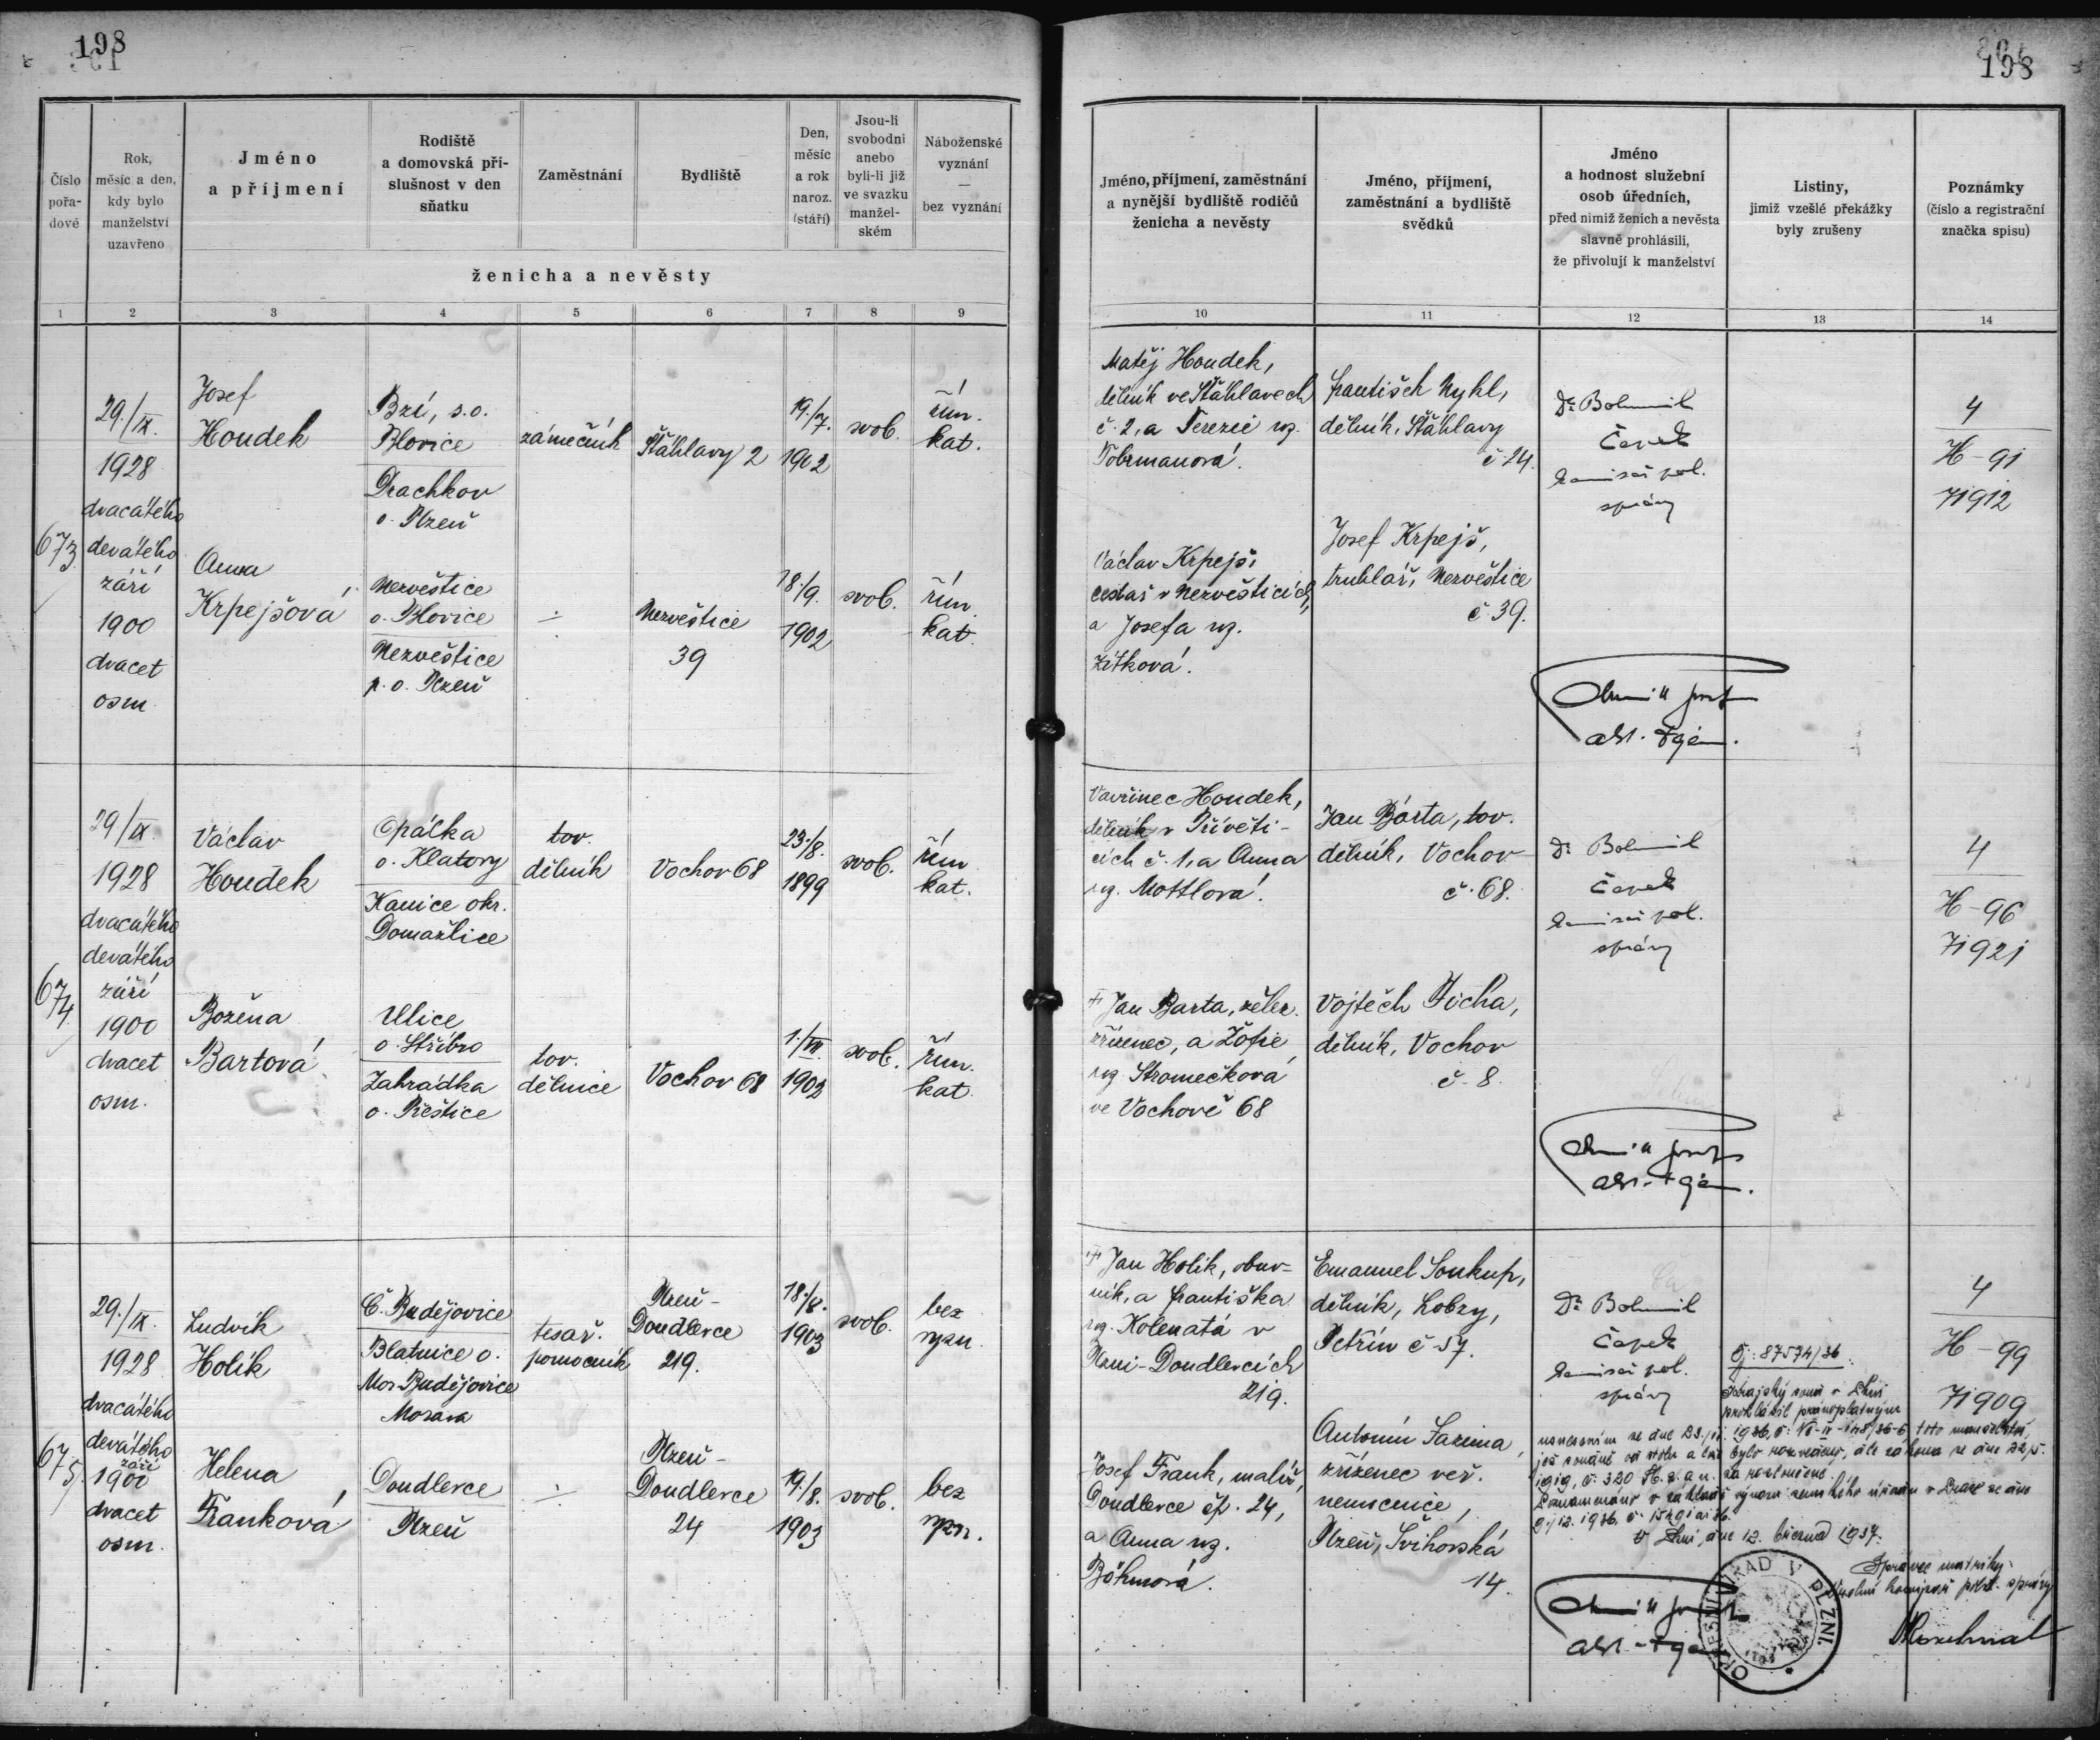 198
198
Číslo pořa- dové
Rok, měsíc a den, kdy bylo manželství uzavřeno
Jméno a příjmení
Rodiště a domovská pří- slušnost v den sňatku
Zaměstnání
Bydliště
Den, měsíc a rok naroz. (stáří)
Jsou-li svobodni anebo byli-li již ve svazku manžel- ském
Náboženské vyznání — bez vyznání
ženicha a nevěsty
Jméno, příjmení, zaměstnání a nynější bydliště rodičů ženicha a nevěsty
Jméno, příjmení, zaměstnání a bydliště svědků
Jméno a hodnost služební osob úředních, před nimiž ženich a nevěsta slavně prohlásili, že přivolují k manželství
Listiny, jimiž vzešlé překážky byly zrušeny
Poznámky (číslo a registrační značka spisu)
1 2 3 4 5 6 7 8 9
10 11 12 13 14
673
29./IX.
1928
dvacátého
devátého
září
1900
dvacet
osm.
Josef
Houdek
Bzí, s.o.
Blovice
Drachkov
o. Plzeň
zámečník
Šťáhlavy 2
19./7.
1902
svob.
řím.
kat.
Matěj Houdek,
dělník ve Šťáhlavech
č. 2, a Terezie roz.
Tobrmanová.
František Nykl,
dělník, Šťáhlavy
č 24.
Dr Bohumil
Čapek
komisař pol.
správy
4
H-91
71912
Anna
Krpejšová
Nezvěstice
o. Blovice
Nezvěstice
p. o. Plzeň
÷
Nezvěstice
39
18./9.
1902
svob.
řím.
kat.
Václav Krpejš,
cestář v Nezvěsticích,
a Josefa roz.
Zítková.
Josef Krpejš,
truhlář, Nezvěstice
č 39.
674
29/IX.
1928
dvacátého
devátého
září
1900
dvacet
osm.
Václav
Houdek
Opálka
o. Klatovy
Kanice okr.
Domažlice
tov.
dělník
Vochov 68
23./8.
1899
svob.
řím.
kat.
Vavřinec Houdek,
dělník v Přívěti-
cích č. 1, a Anna
roz. Mottlová.
Jan Bárta, tov.
dělník, Vochov
č. 68.
Dr Bohumil
Čapek
komisař pol.
správy
4
H-96
71921
Božena
Bartová
Ulice
o. Stříbro
Zahrádka
o. Přeštice
tov.
dělnice
Vochov 68
1902
svob.
řím.
kat.
+ Jan Barta, želez.
zřízenec, a Žofie
roz. Stromečková
ve Vochově 68
Vojtěch Jícha,
dělník, Vochov
č. 8.
675
29./IX.
1928
dvacátého
devátého
září
1900
dvacet
osm.
Ludvík
Holík
Č. Budějovice
Blatnice o.
Mor. Budějovice
Morava
tesař.
pomocník
Plzeň-
Doudlevce
219.
18./8.
1903
svob.
bez
vyzn.
+ Jan Holík, obuv-
ník, a Františka
roz. Kolenatá v
Plzni-Doudlevcích
219.
Emanuel Soukup,
dělník, Lobzy,
Petřín č 57.
Dr Bohumil
Čapek
komisař pol.
správy
4
H-99
71909
Helena
Franková
Doudlevce
Plzeň
÷
Plzeň-
Doudlevce
24
19./8.
1903
svob.
bez
vyzn.
Josef Frank, malíř,
Doudlevce čp. 24,
a Anna roz.
Böhmová.
Antonín
zřízenec veř.
nemocnice,
Plzeň, Švihovská
14.
Čj: 87574/36
Krajský soud v Plzni
prohlásil pravoplatným
usnesením ze dne
toto manželství,
bylo rozvedeno, dle zákona ze dne 22/5.
1919, č. 320 Sb. z. a n. za rozloučené.
Poznamenáno v základě výnosu zemského úřadu v Praze ze dne
9./12. 1936
V Plzni, dne 12. března 1937.
Správce matriky:
OKRESNÍ ÚŘAD V PLZNI